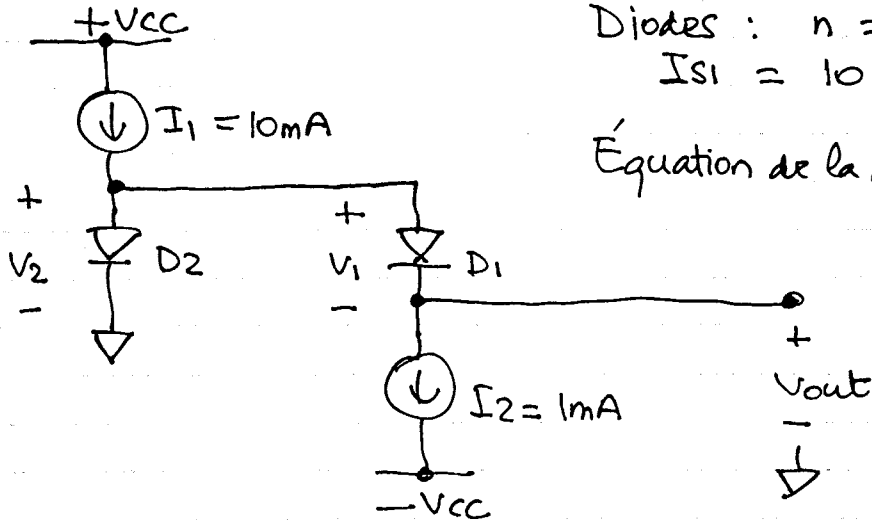 +VCC
Diodes : n =
IS1 = 10
I1 = 10mA
Équation de la
+
V2
-
D2
+
V1
-
D1
+
Vout
-
I2 = 1mA
-VCC